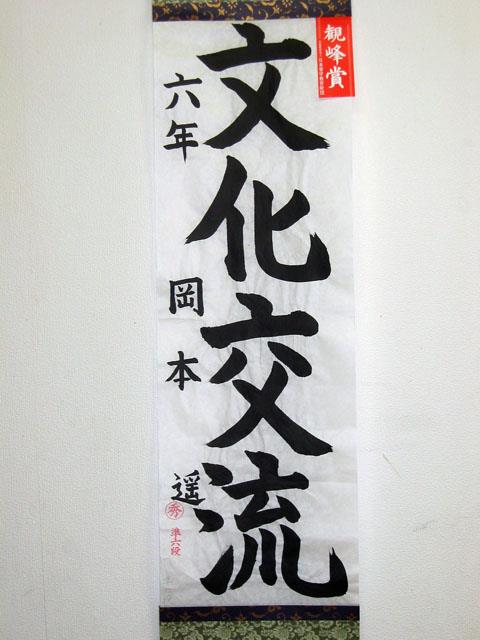 観峰賞
文化交流
六年 岡本 遥
秀
準六段